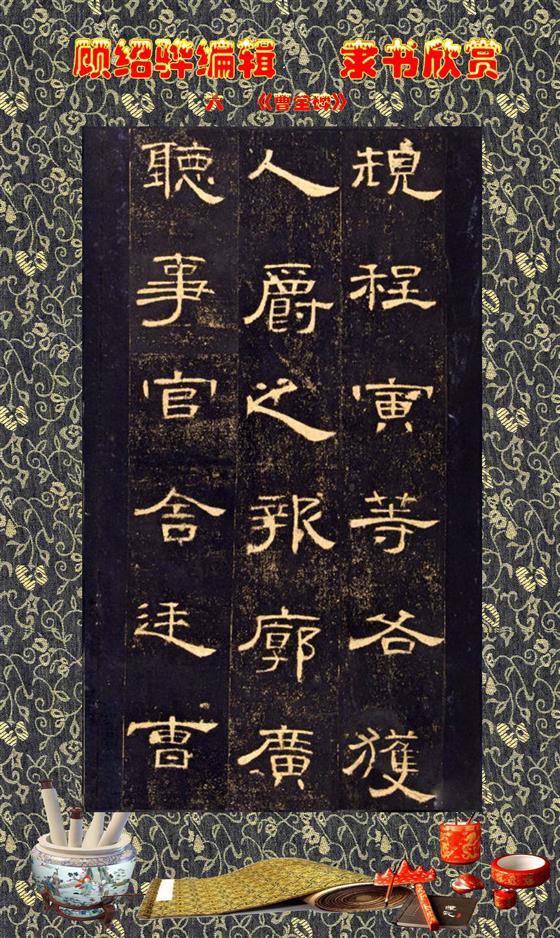 顾绍骅编辑 隶书欣赏
六 《曹全碑》
規程寅等各獲
人爵之報廓廣
聽事官舍廷曹